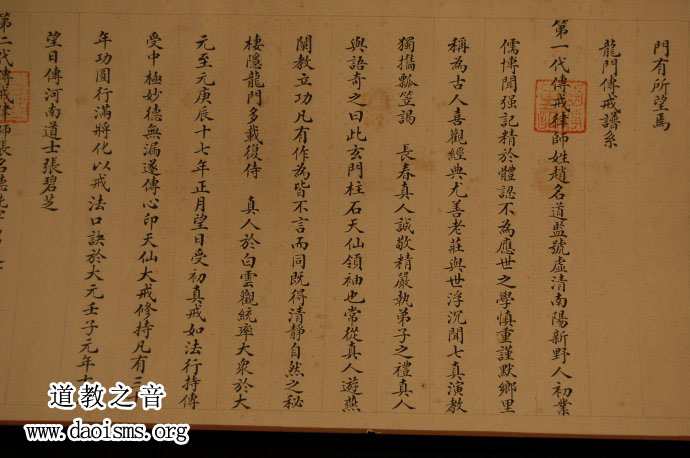 門有所望焉
龍門傳戒譜系
第一代傳戒律師姓趙名道堅號虛清南陽新野人初業
儒博聞强記精於體認不為應世之學慎重謹默鄉里
稱為古人喜觀經典尤善老莊與世浮沉聞七真演教
獨攜瓢笠謁 長春真人誠敬精嚴執弟子之禮真人
與語奇之曰此玄門柱石天仙領袖也常從真人遊燕
闡教立功凡有作為皆不言而同既得清静自然之秘
棲隱龍門多載復侍 真人於白雲觀統率大衆於大
元至元庚辰十七年正月望日受初真戒如法行持傳
受中極妙德無漏遂傳心印天仙大戒修持凡有三十
年功圓行滿將化以戒法口訣於大元壬子元年十
望日傳河南道士張碧芝
第二代傳戒律師張名德純
道教之音
www.daoisms.org